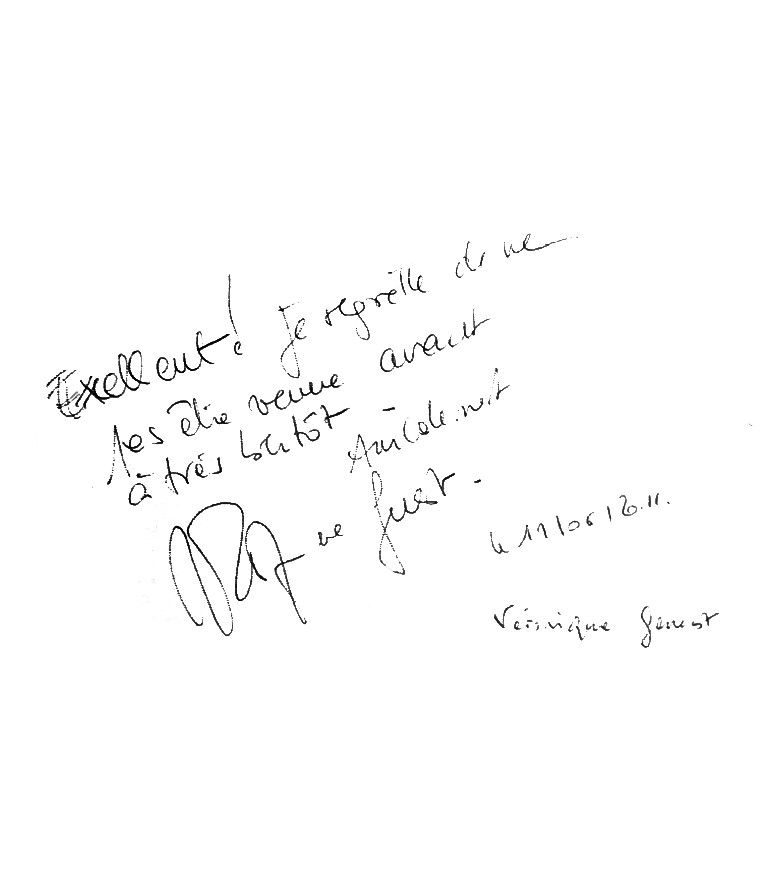 Exellent! Je regrette de ne
pas être venue avant
à très bientôt - Amicalement
ue Genest.
le 11/06/2011.
Véronique Genest